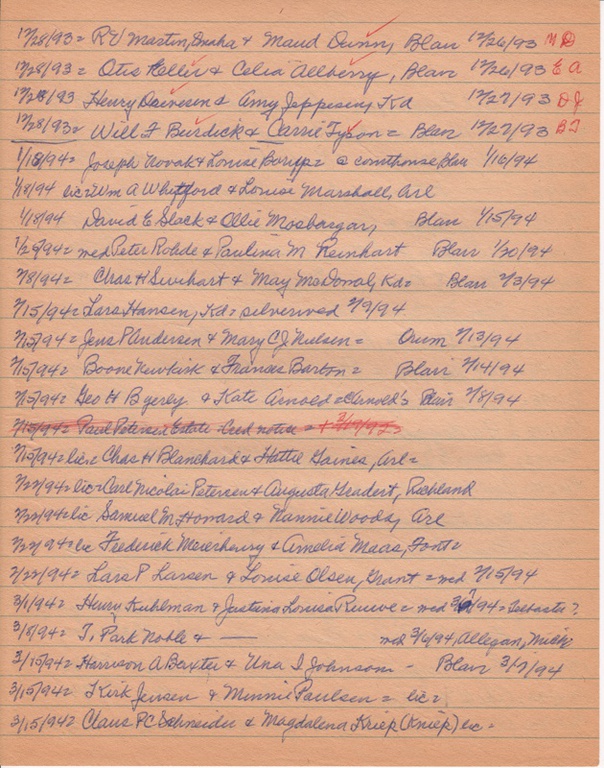 12/28/93 = RV Martin, Omaha & Maud Dunn, Blair 12/26/93 M D
12/28/93 = Otis Keller & Celia Allberry, Blair 12/26/93 E A
12/28/93 Henry & Amy Jeppesen, Kd 12/27/93 D J
12/28/93 = Will F Burdick & Carrie Tyson = Blair 12/27/93 B T
1/18/94 = Joseph Novak & Louise = @ courthouse Blair 1/16/94
1/18/94 lic = Wm A Whitford & Louise Marshall, Arl
1/18/94 David E Slack & Ollie Mosbargar, Blair 1/15/94
1/25/94 = med Peter Rohde & Paulina M Reinhart Blair 1/20/94
2/8/94 = Chas H Swihart & May McDonal, Kd = Blair 2/3/94
2/15/94 = Lars Hansen, Kd = silverwed 2/9/94
2/15/94 = Jens P Andersen & Mary C J Nielsen = Orum 2/13/94
2/15/94 = Boone Newkirk & Frances Barton = Blair 2/14/94
2/15/94 = Geo H Byerly & Kate Arnold = @ Arnold's Blair 2/8/94
2/15/94 = Paul Petersen Estate Cred notice =
2/15/94 = lic = Chas H Blanchard & Hattie Gaines, Arl =
2/22/94 = lic = Carl Nicolai Petersen & Augusta Gradert, Richland
2/22/94 = lic Samuel M Howard & Nannie Woods, Arl
2/22/94 = lic Frederick Meierhenry & Amelia Maas, Font =
2/22/94 = Lars P Larsen & Louise Olsen, Grant = med 2/15/94
3/1/94 = Henry Kuhlman & Justina Louisa = med /94 = ?
3/8/94 = T. Park Noble & — med 3/4/94, Allegan, Mich
3/15/94 = Harrison A Baxter & Una I Johnson - Blair 3/7/94
3/15/94 = Kirk Jensen & Minnie Paulsen = lic =
3/15/94 = Claus P C Schneider & Magdalena Kriep (Kniep) lic =